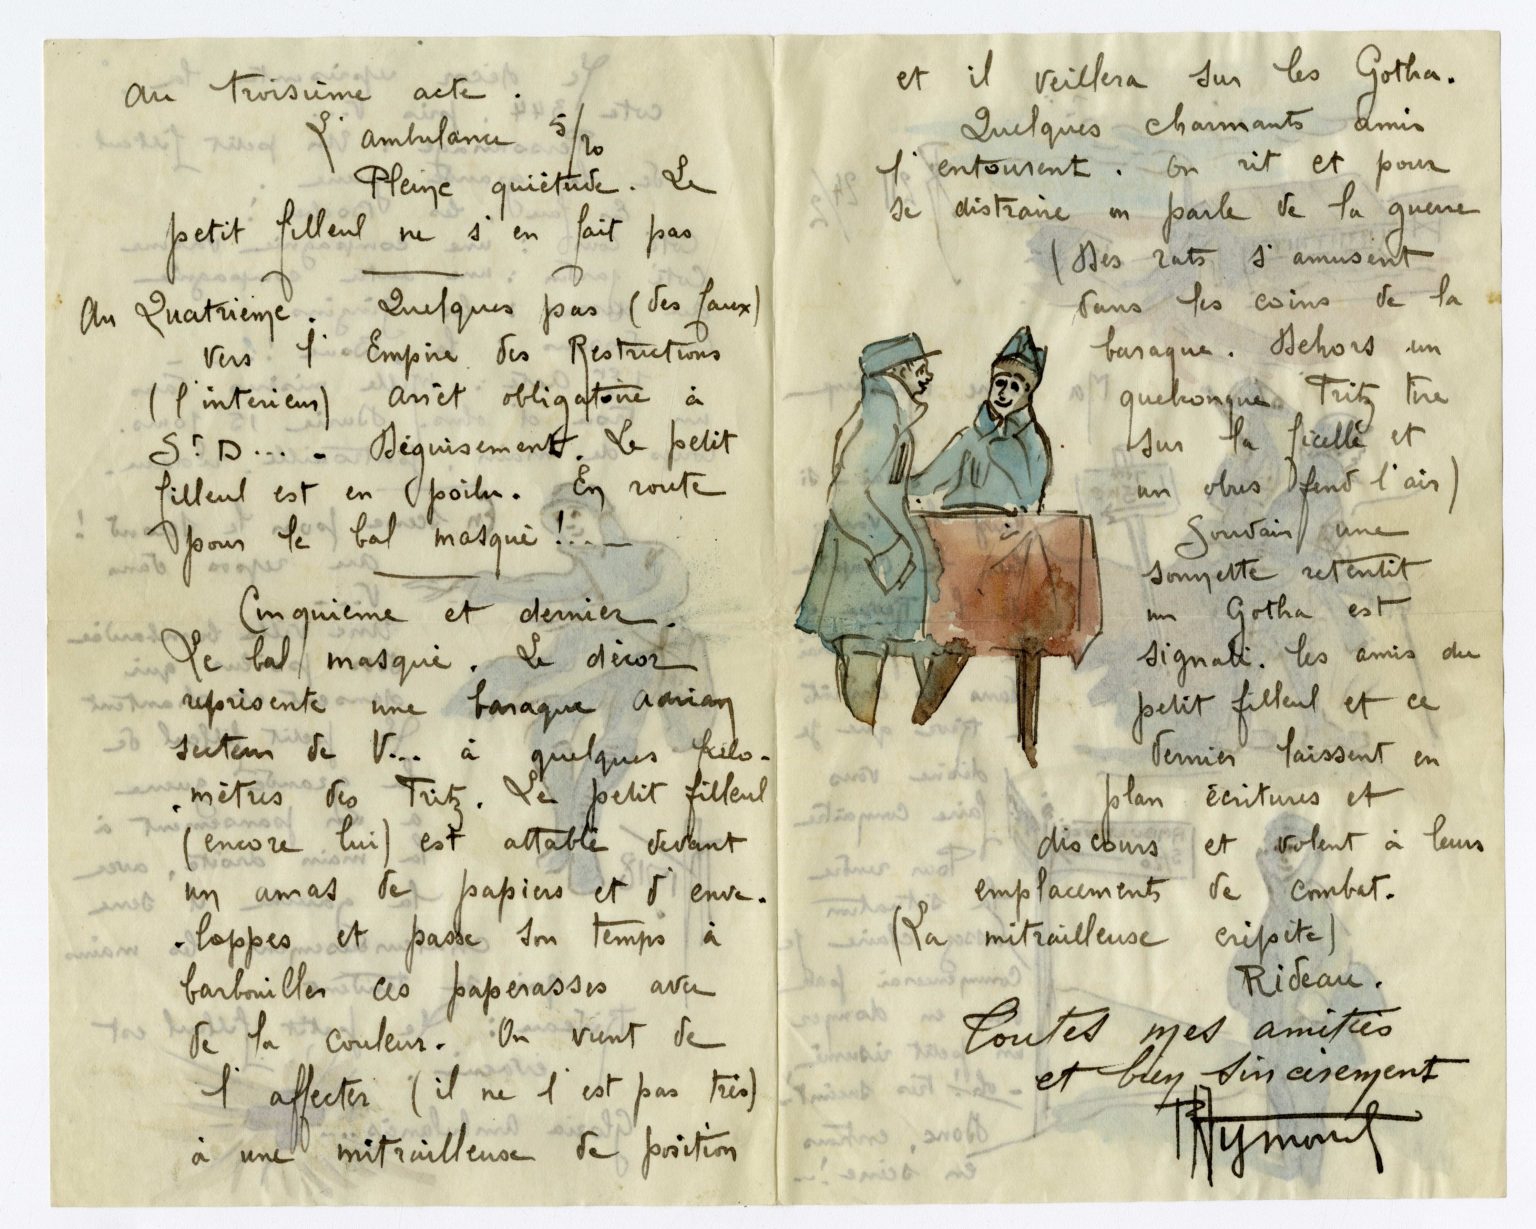 Au troisième acte.
L'ambulance 5/70
Pleine quiétude. Le
petit filleul ne s'en fait pas
Au Quatrième. Quelques pas (des faux)
vers l'Empire des Restrictions
(l'intérieur) Arrêt obligatoire à
St D... - Déguisement. Le petit
filleul est en poilu. En route
pour le bal masqué !...
Cinquième et dernier.
Le bal masqué. Le décor
représente une baraque Adrian
secteur de V... à quelques kilo-
-mètres des Fritz. Le petit filleul
(encore lui) est attablé devant
un amas de papiers et d'enve-
-loppes et passe son temps à
barbouiller ces paperasses avec
de la couleur. On vient de
l'affecter (il ne l'est pas très)
à une mitrailleuse de position
et il veillera sur les Gotha.
Quelques charmants amis
l'entourent. On rit et pour
se distraire on parle de la guerre
(Des rats s'amusent
dans les coins de la
baraque. Dehors un
quelconque Fritz tire
sur la ficelle et
un obus fend l'air)
Soudain une
sonnette retentit
un Gotha est
signalé. les amis du
petit filleul et ce
dernier laissent en
plan écritures et
discours et volent à leurs
emplacements de combat.
(La mitrailleuse crépite)
Rideau.
Toutes mes amitiés
et bien sincèrement
RHymond